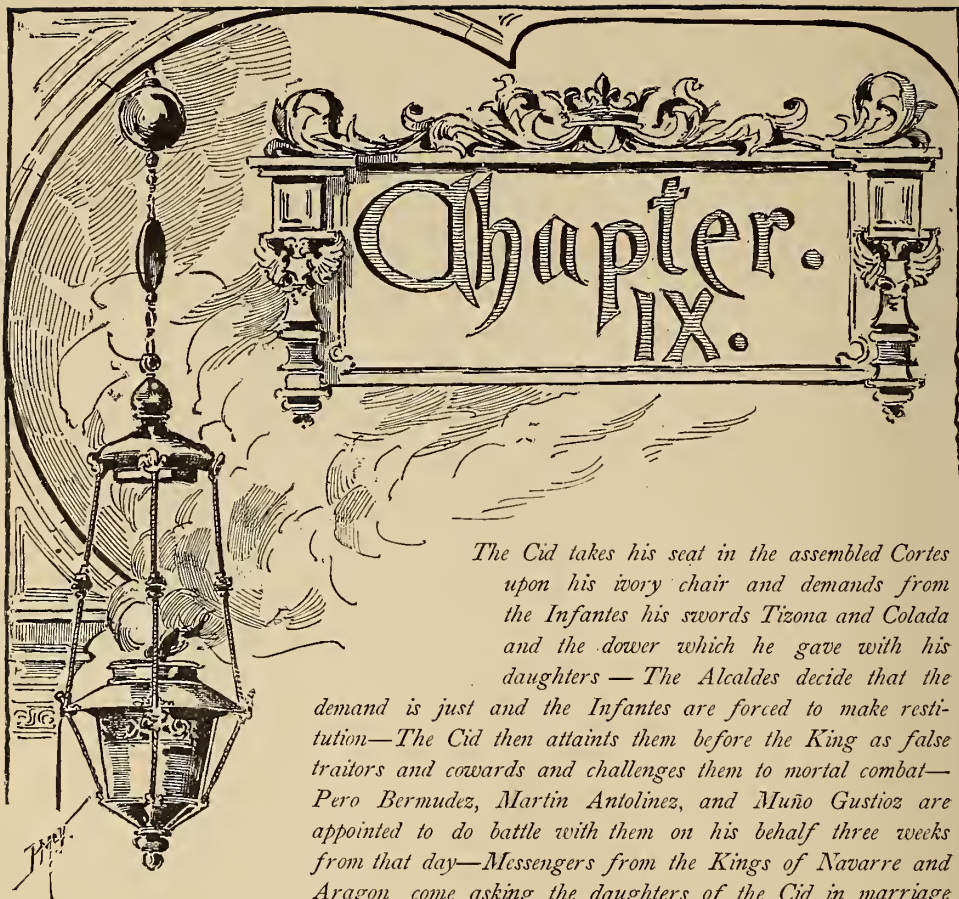 Chapter.
IX.
The Cid takes his seat in the assembled Cortes
upon his ivory chair and demands from
the Infantes his swords Tizona and Colada
and the dower which he gave with his
daughters — The Alcaldes decide that the
demand is just and the Infantes are forced to make resti-
tution—The Cid then attaints them before the King as false
traitors and cowards and challenges them to mortal combat—
Pero Bermudez, Martin Antolinez, and Muño Gustioz are
appointed to do battle with them on his behalf three weeks
from that day—Messengers from the Kings of Navarre and
Aragon come asking the daughters of the Cid in marriage